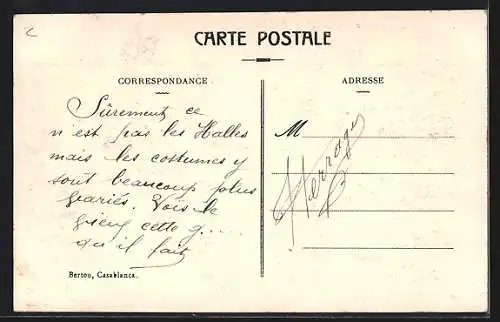 c
CARTE POSTALE
CORRESPONDANCE
Sûrement ce
n'est pas les Halles
mais les costumes y
sont beaucoup plus
variés. Vois le
vieux cette g.....
qu'il fait
Bertou, Casablanca.
ADRESSE
M